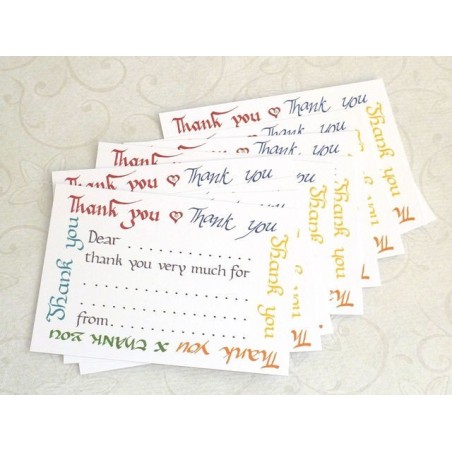 Thank you ♡ Thank you
Thank you ♡ Thank you
Thank you ♡ Thank you
Thank you ♡ Thank you
Thank you
Dear . . . . . . . . . . . .
thank you very much for
. . . . . . . . . . . . . . . . .
. . . . . . . . . . . . . . . . .
from. . . . . . . . . . . . .
Thank you
Thank you x thank you
Thank
Thank
Thank you